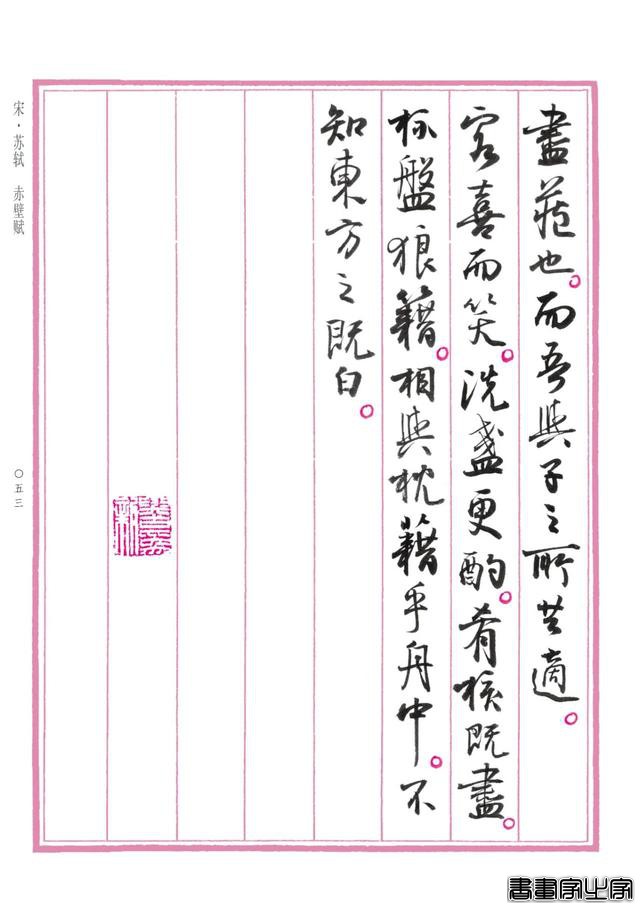 盡藏也。而吾與子之所共適。
客喜而笑。洗盞更酌。肴核既盡。
杯盤狼籍。相與枕籍乎舟中。不
知東方之既白。
宋·苏轼 赤壁赋
〇五三
書畫家字字